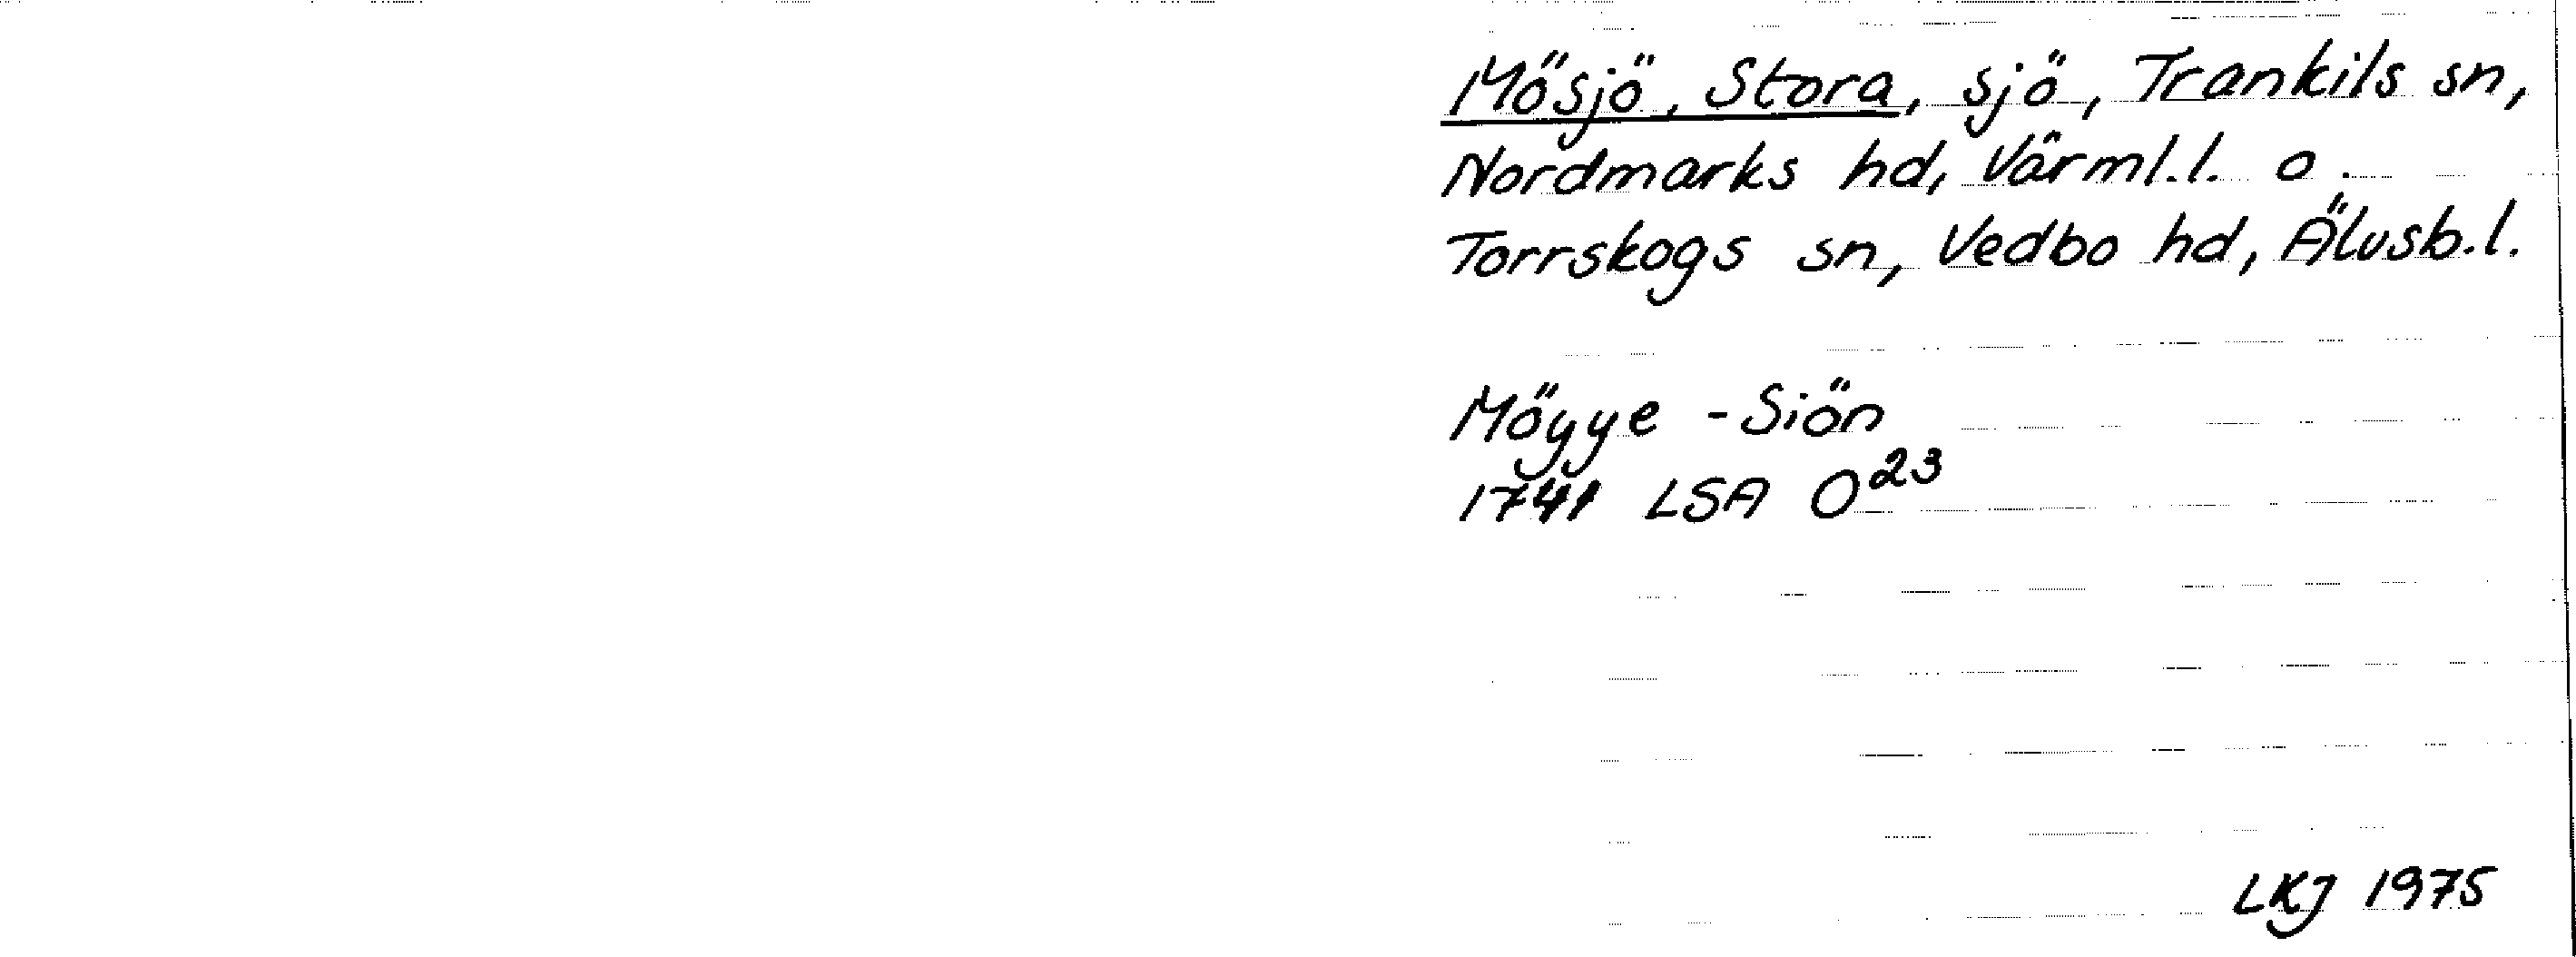 Mösjö, Stora, sjö, Trankils sn,
Nordmarks hd, Värml.l. o.
Torrskogs sn, Vedbo hd, Älvsb.l.
Möyye - Siön
1741 LSA O23
LKJ 1975